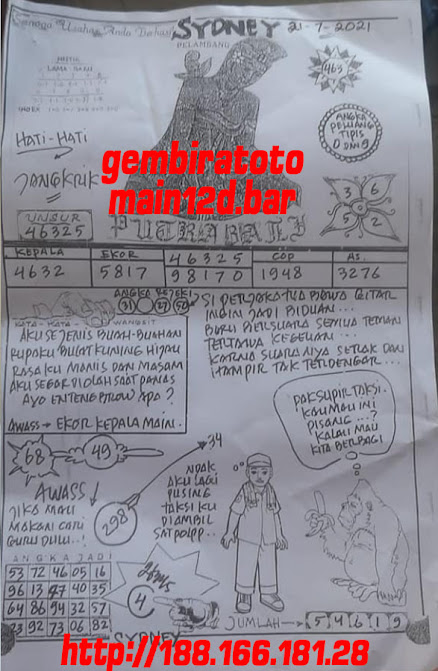 Semoga Usaha Anda Berhasil
SYDNEY 21-7-2021
PELAMBANG
463
LAMA BARU
INDEX
HATI-HATI
JANGKRIK
ANGKA
PELUANG
TIPIS
0 DAN 9
gembiratoto
main12d.bar
3 6
5 2
UNSUR
46325
PUTRA BALI
KEPALA EKOR 46325 COP AS.
4632 5817 98170 1948 3276
ANGKA REJEKI
KATA - KATA WANGSIT
AKU SEJENIS BUAH-BUAHAN
RUPAKU BULAT KUNING HIJAU
RASAKU MANIS DAN MASAM
AKU SEGAR DIOLAH SAAT PANAS
AYO ENTENG BROW APA ?
AWASS → EKOR KEPALA MAIN.
SI PERJAKA TUA BAWA GITAR
INGIN JADI BIDUAN...
BARU BERSUARA SEMUA TEMAN
TERTAWA KEGELIAN...
KARNA SUARANYA SERAK DAN
HAMPIR TAK TERDENGAR...
PAK SUPIR TAKSI.
KAU MAU INI
PISANG...?
KALAU MAU
KITA BERBAGI
68 49
34
298
AWASS
JIKA MAU
MAKAN CARI
GURU DULU..!
NDAK
AKU LAGI
PUSING
TAKSI KU
DIAMBIL
SATPOLPP..
ANGKA JADI
53 72 46 05 16
96 13 47 40 35
64 86 94 32 57
23 92 73 06 82
4
SYDNEY
JUMLAH → 5 4 6 1 9
http://188.166.181.28